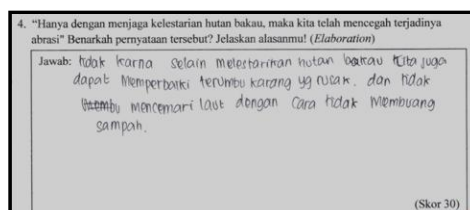 4. “Hanya dengan menjaga kelestarian hutan bakau, maka kita telah mencegah terjadinya
abrasi” Benarkah pernyataan tersebut? Jelaskan alasanmu! (Elaboration)
Jawab: tidak karna selain melestarikan hutan bakau kita juga
dapat memperbaiki terumbu karang yg rusak. dan tidak
mencemari laut dengan cara tidak membuang
sampah.
(Skor 30)